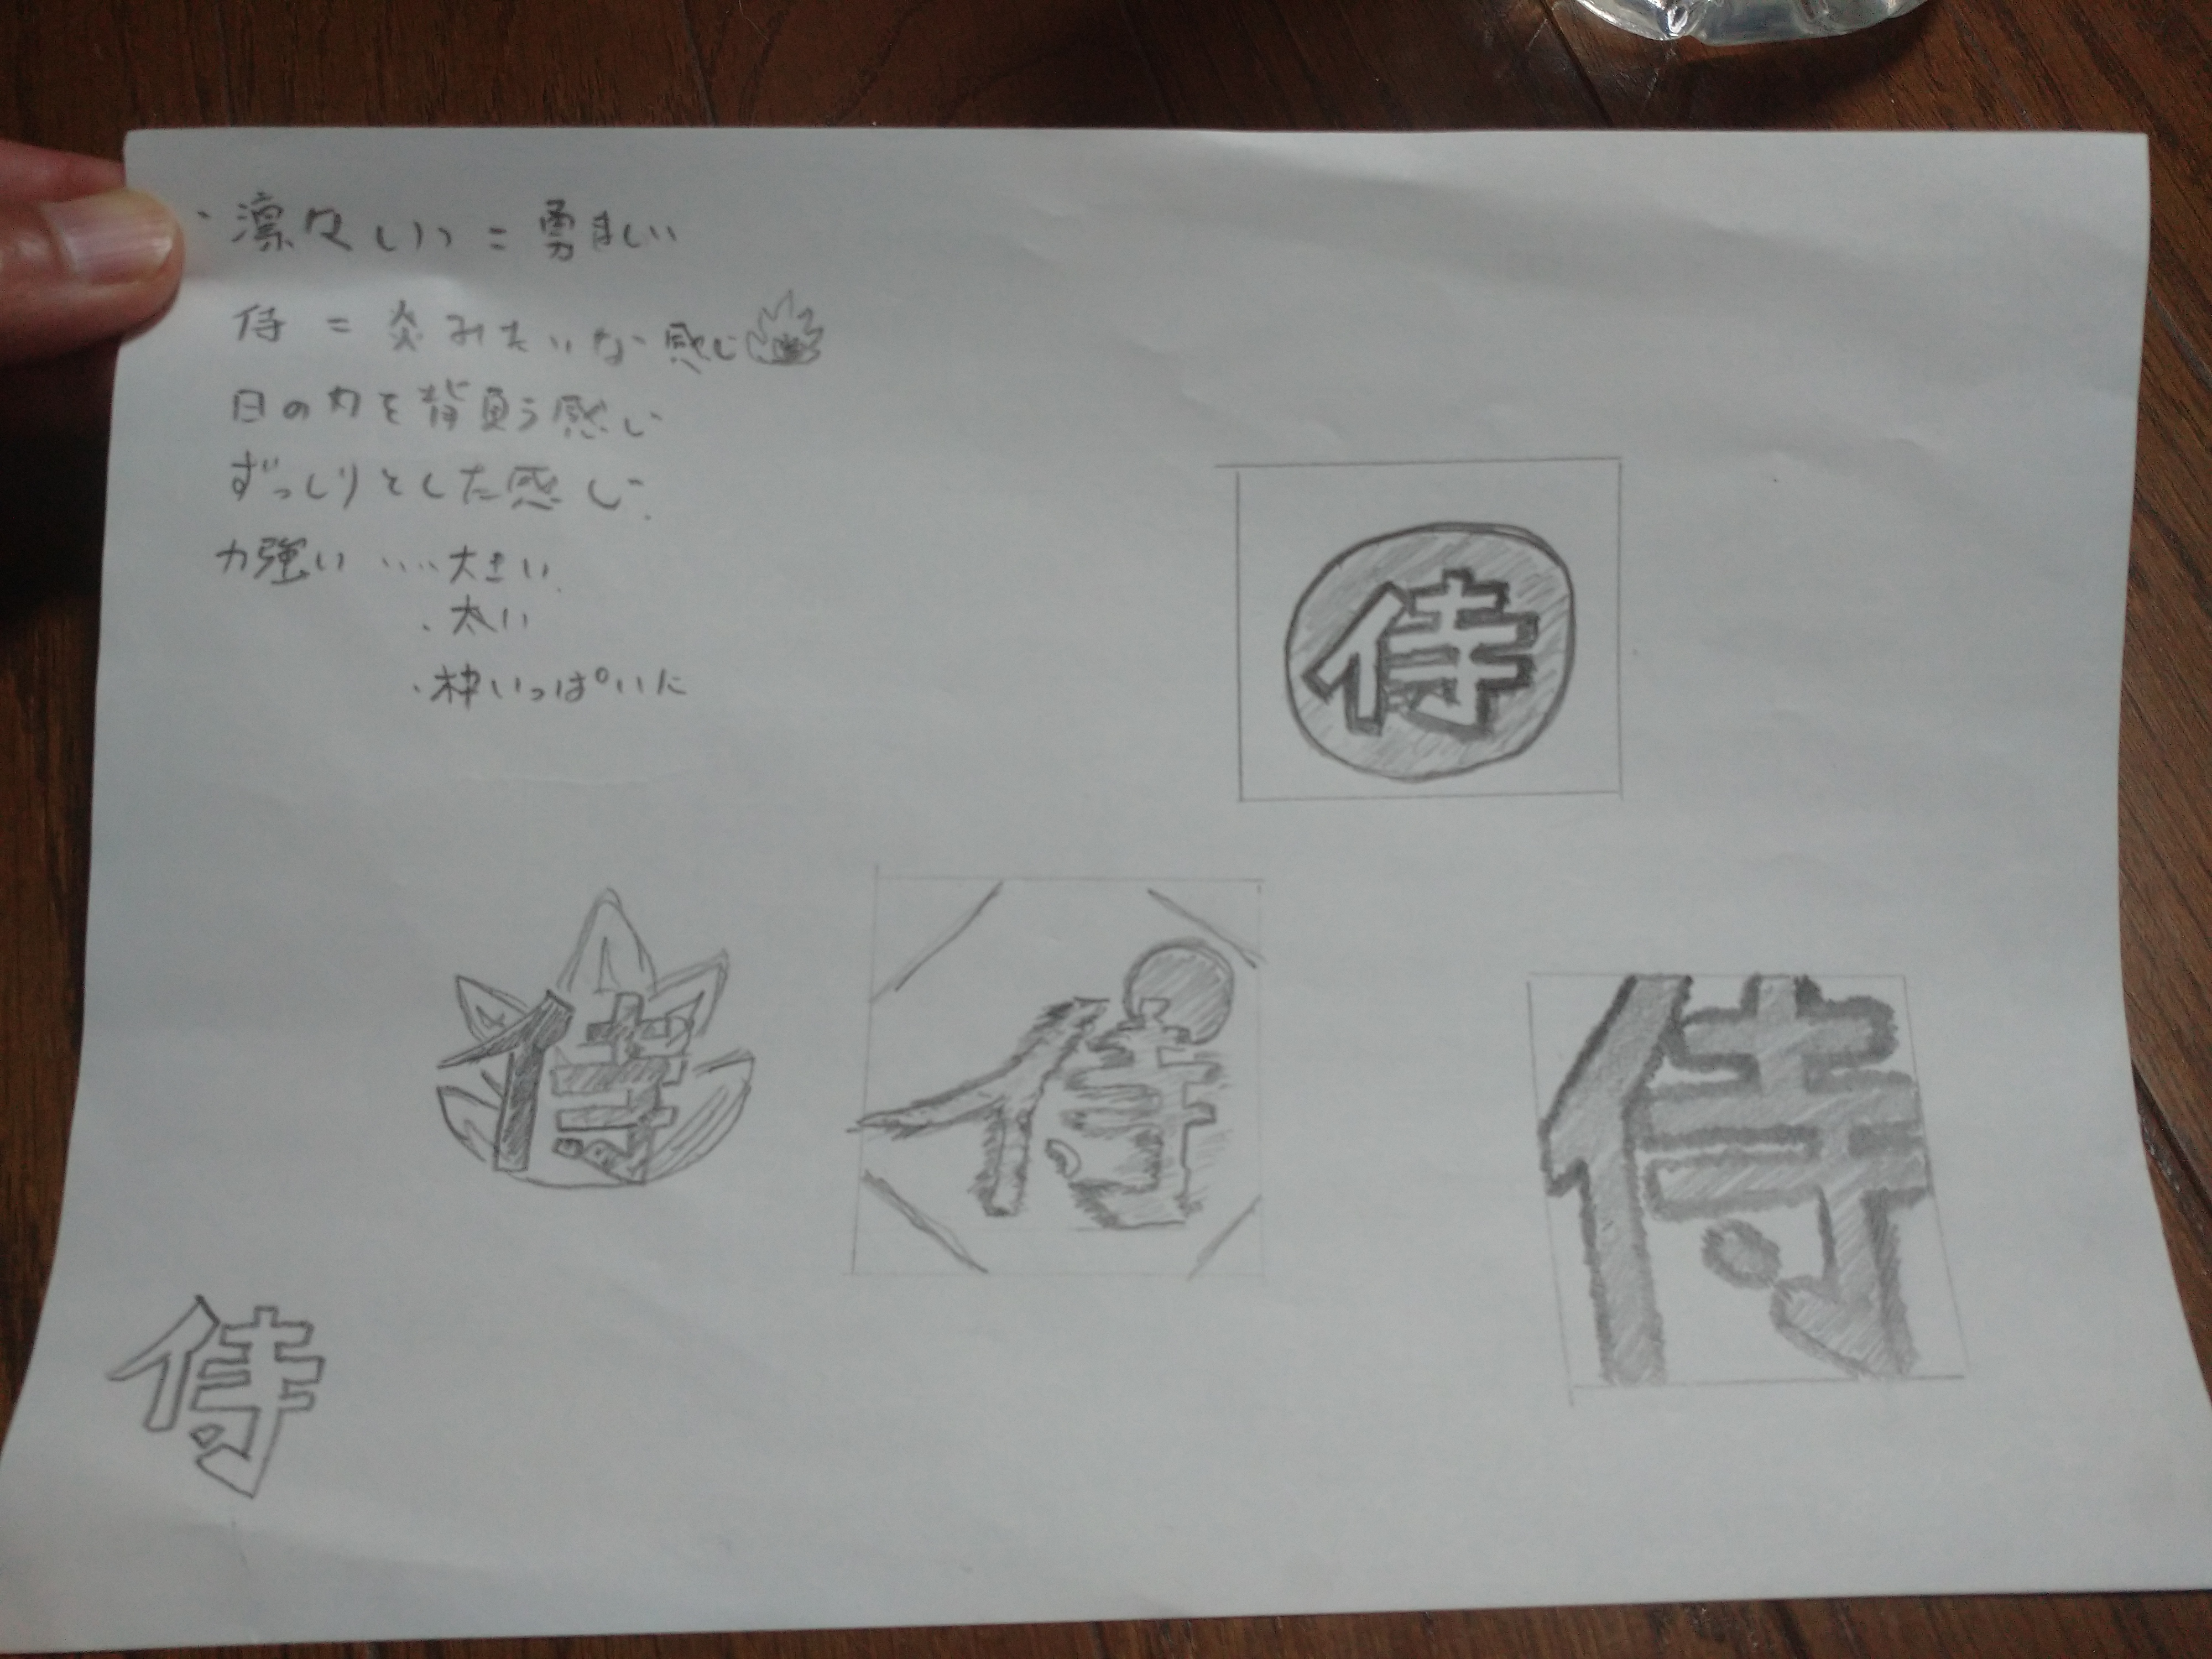 ・凛々しい＝勇ましい
侍＝炎みたいな感じ
日の丸を背負う感じ
ずっしりとした感じ.
力強い・・・・大きい.
・太い
・枠いっぱいに
侍
侍
侍
侍
侍